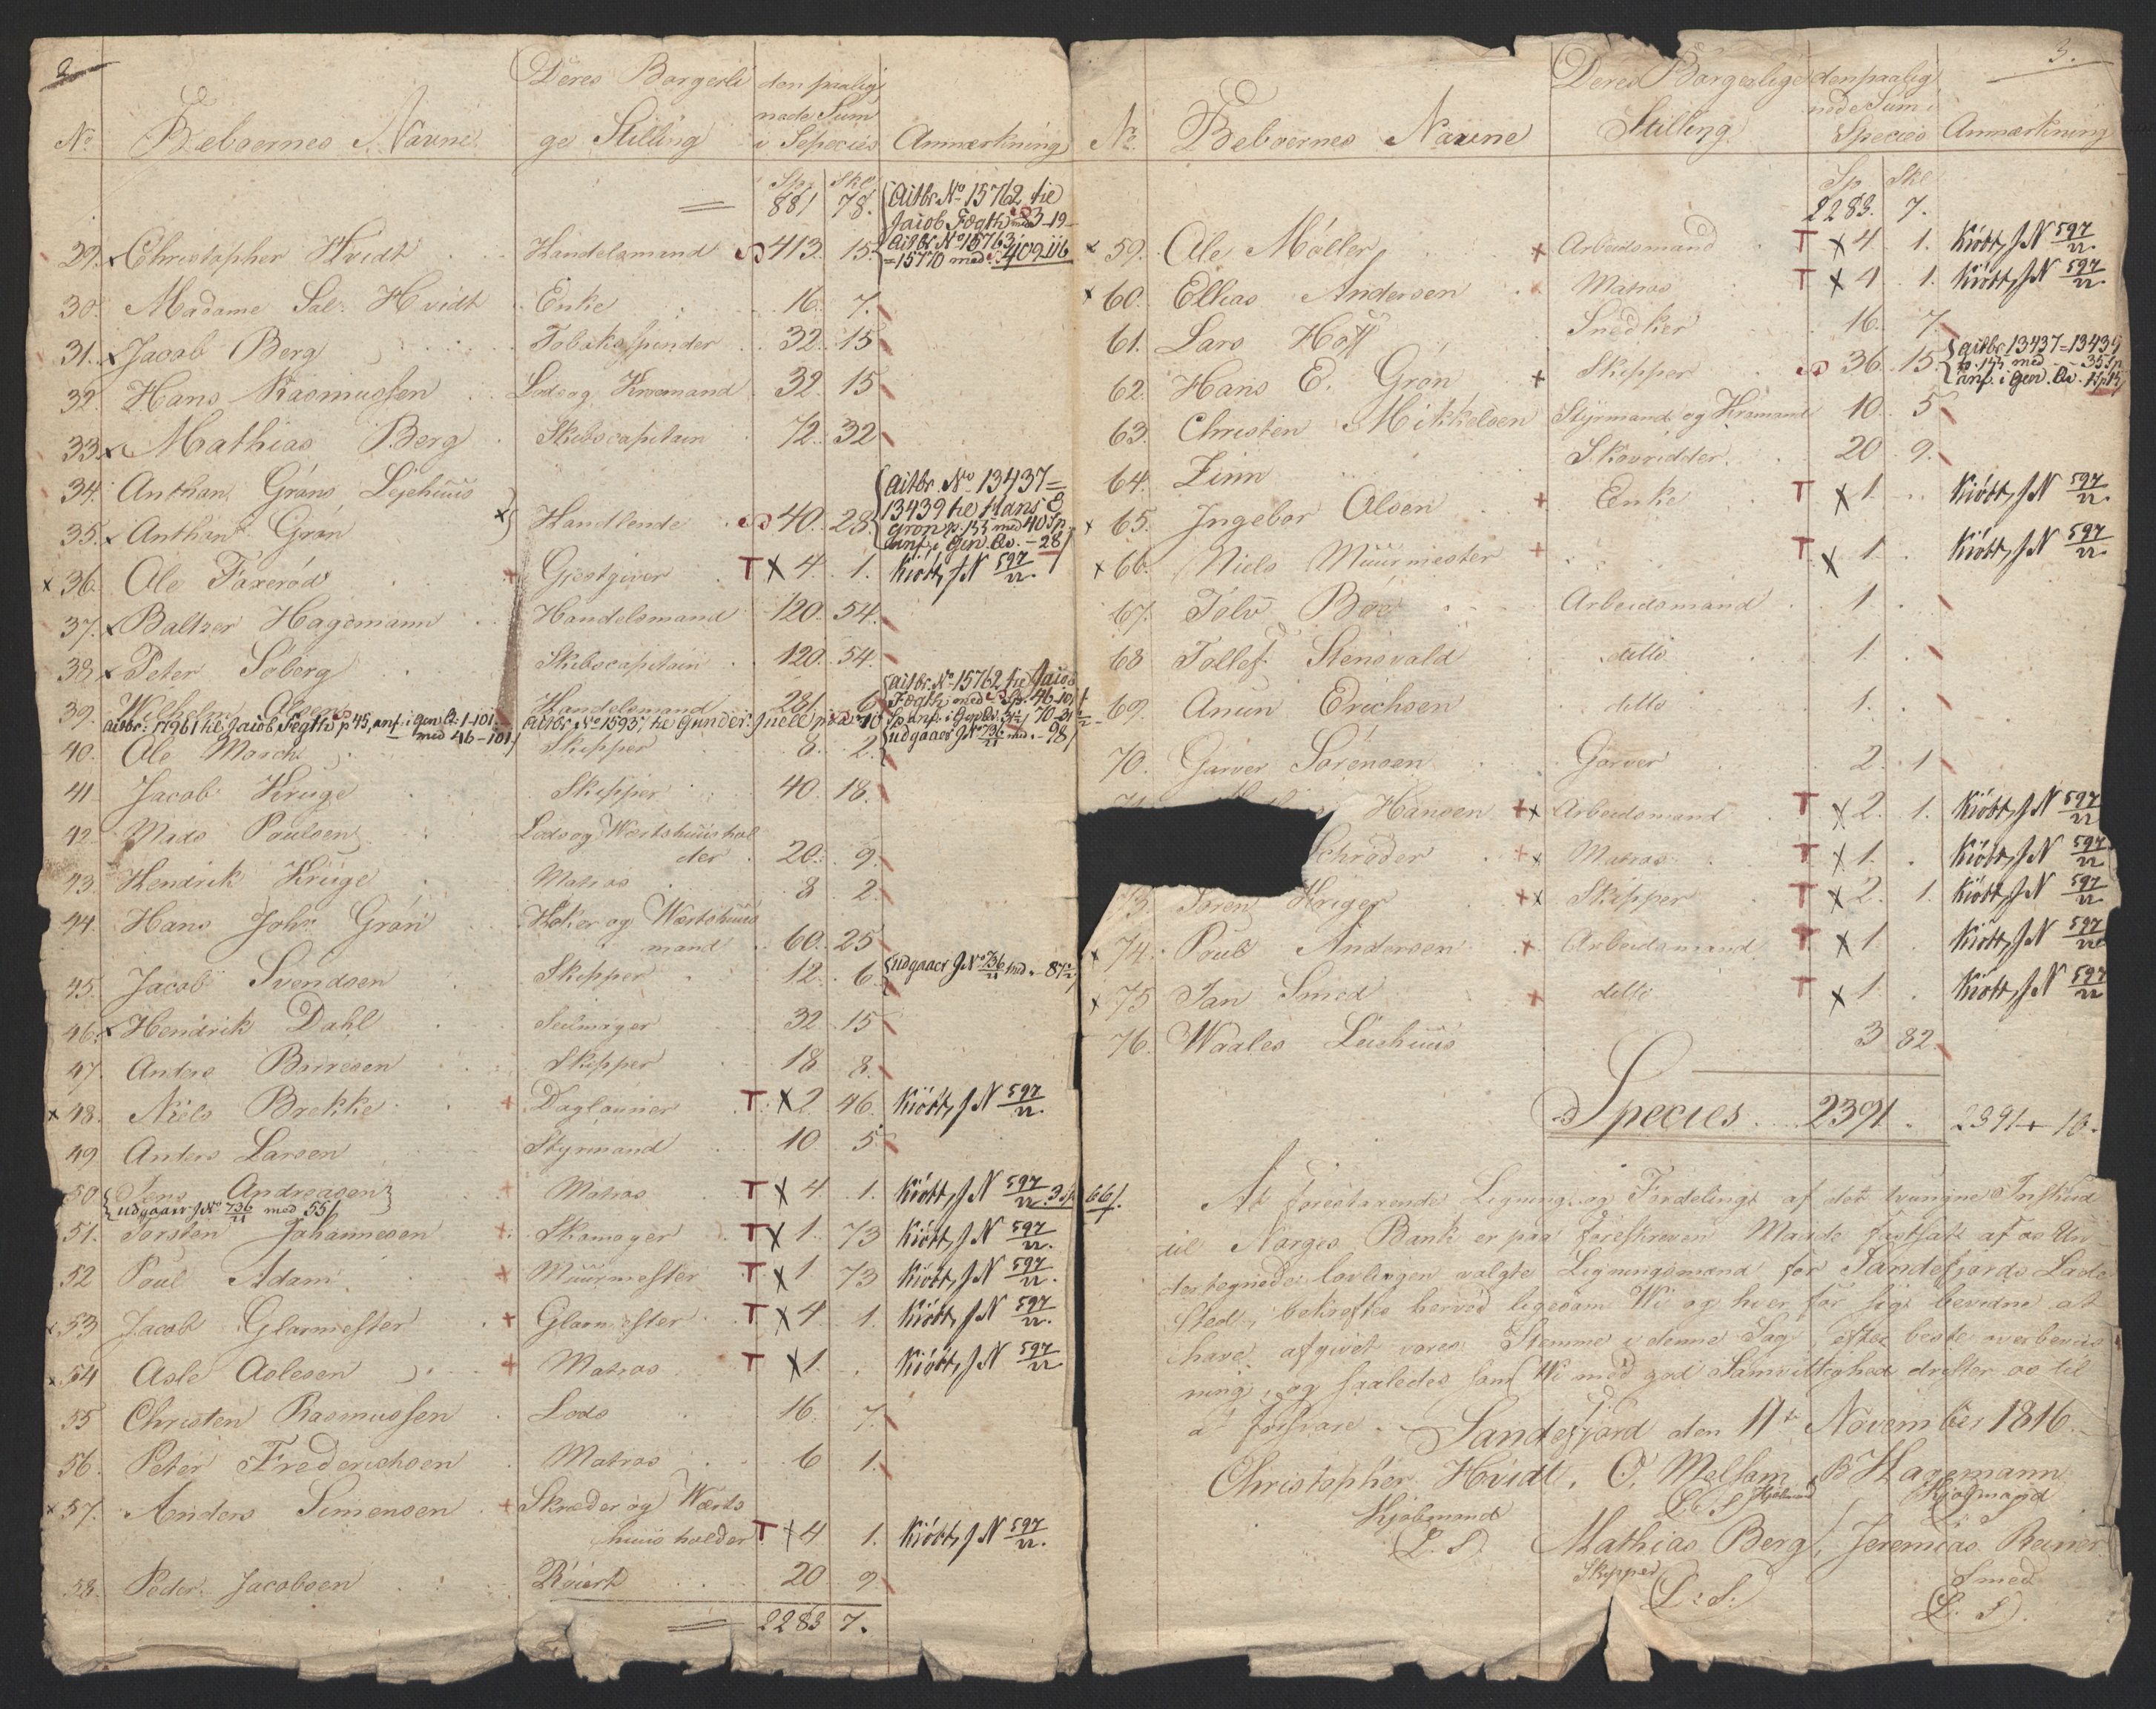 2
No. Beboernes Navne Deres Borgerli den paalig
ge Stilling nade Sum
i Species Anmærkning
Sp. Skl.
881 78. Aitbr. No 15762 til
Jacob Fogth med 3-19-
29. Christopher Hvidt Handelsmand 413. 15. Aitbr No 15763
=15770 med 409-116
30. Madame Sal. Hvidt Enke 16. 7.
31. Jacob Berg Tobaksspinder 32. 15
32. Hans Rasmussen Lods og Kroemand 32. 15
33. Mathias Berg Skibscapitain 72. 32
34. Anthan Gröns Lejehuus
35. Anthan Grön Handlende 40. 28. Aitbr. No 13437=
13439 til Hans E
Grøn p. 155 med 40 Sp.
anf. i Gen. Qv. - 28
x 36. Ole Faxeröd + Gjestgiver T x 4. 1. Kiött, J N 597/22.
37. Baltzer Hagemann Handelsmand 120. 54.
38. Peter Söberg Skibscapitain 120. 54.
39. Wilhelm Olsen Handelsmand 281 6 Aitbr. No 15762 til Jacob
Fogth med Sp. 46-101
aitbr: 17961 til Jacob Fegth p 45, anf. i gen Qv: 1-101.
med 46-101. aitbr. No 1595, til Gunder Gnell p
40. Ole Morch Skipper 8. 2. udgaaer J No 736/21 med - 98
41 Jacob Kruge Skipper 40. 18.
42 Mads Poulsen Lods og Wærtshuushol
der 20. 9.
43 Hendrik Krüge Matros 8 2.
44. Hans Johs Grön Höker og Wærtshuus
mand 60. 25
45. Jacob Svendsen Skipper 12. 6. udgaaer J No 736/21 med - 87½
46. Hendrik Dahl Seilmager 32 15
47. Anders Börresen Skipper 18 8.
x 48. Niels Brekke + Daglönner T x 2 46. Kiött, J N 597/22.
49 Anders Larsen Styrmand 10 5
50. Jens Andreasen + Matros T x 4 1. Kiött, J N 597/22. 3 Sp 66.
udgaaer J No 736/21 med 55
51. Torsten Johannesen + Skomager T x 1. 73 Kiött, J N 597/22.
52 Poul Adam + Muurmester T x 1 73 Kiött, J N 597/22.
x 53 Jacob Glarmester + Glarmester T x 4. 1. Kiött, J N 597/22.
x 54 Asle Aslesen + Matros T x 1. Kiött, J N 597/22.
55 Christen Rasmussen Lods 16. 7.
56. Peter Frederichsen Matros 6 1.
x 57. Anders Simensen + Skræder og Wærts
huusholder T + 4 1. Kiött, J N 597/22.
58. Peder Jacobsen 20 9
2283 7.
3.
No. Beboernes Navne Deres Borgerlige den paalig
Stilling nede Sum i
Species Anmærkning
Sp. Skl
2283. 7.
x 59. Ole Möller + Arbeidsmand T x 4. 1. Kiött, J N 597/22.
x 60. Ellias Andersen + Matros T x 4 1. Kiött, J N 597/22.
61. Lars Hoff Snedker 16. 7.
62. Hans E. Grön + Skipper 36. 15. aitbr. 13437=13439
p. 155 med - 35 Sp
anf. i Gen. Qv.
63. Christen Mikkelsen Styrmand og Kromand 10. 5
64. Zinn Skovridder 20 9.
x 65. Ingebor Olsen + Enke T x 1 Kiött, J N 597/22.
x 66. Niels Muurmester + T x 1. Kiött, J N 597/22.
67. Tolv Böe Arbeidsmand 1.
68 Tollef Stensvald ditto 1.
69. Anun Erichsen ditto 1.
70. Garver Sörensen Garver 2. 1
Hansen + x Arbeidsmand T x 2. 1. Kiött, J N 597/22
Schröder + x Matros T x 1. Kiött, J N 597/22
73. Sören Kriger + x Skipper T x 2. 1. Kiött, J N 597/22
x 74. Poul Andersen + Arbeidsmand T x 1. Kiött, J N 597/22
x 75 Jan Smed + ditto T x 1. Kiött, J N 597/22
76. Waales Leiehuus 3 82.
Species 2391. 2391 + 10.
At forestaaende Ligning og Fordeling af det tvungne Indskud
til Norges Bank er paa foreskreven Maade fastsatt af os Un
dertegnede lovligen valgte Ligningsmænd for Sandefjords Lade
sted, bekræftes herved ligesom Wi og hver for sig bevidne at
have afgivet vores Stemme i denne Sag efter beste overbevis
ning, og saaledes som Wi med god Samvittighed drister os til
at forsvare. Sandefjord den 11te November 1816.
Christopher Hvidt, O. Melsom, B Hagemann
Kjøbmand L. S. Kjøbmand
L. S. Mathias Berg, Jeremias Reiner
Skipper Smed
L. S. L. S.